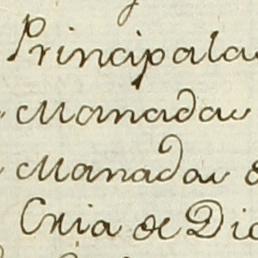 Principala
Manada
Manada
Cria de Dic